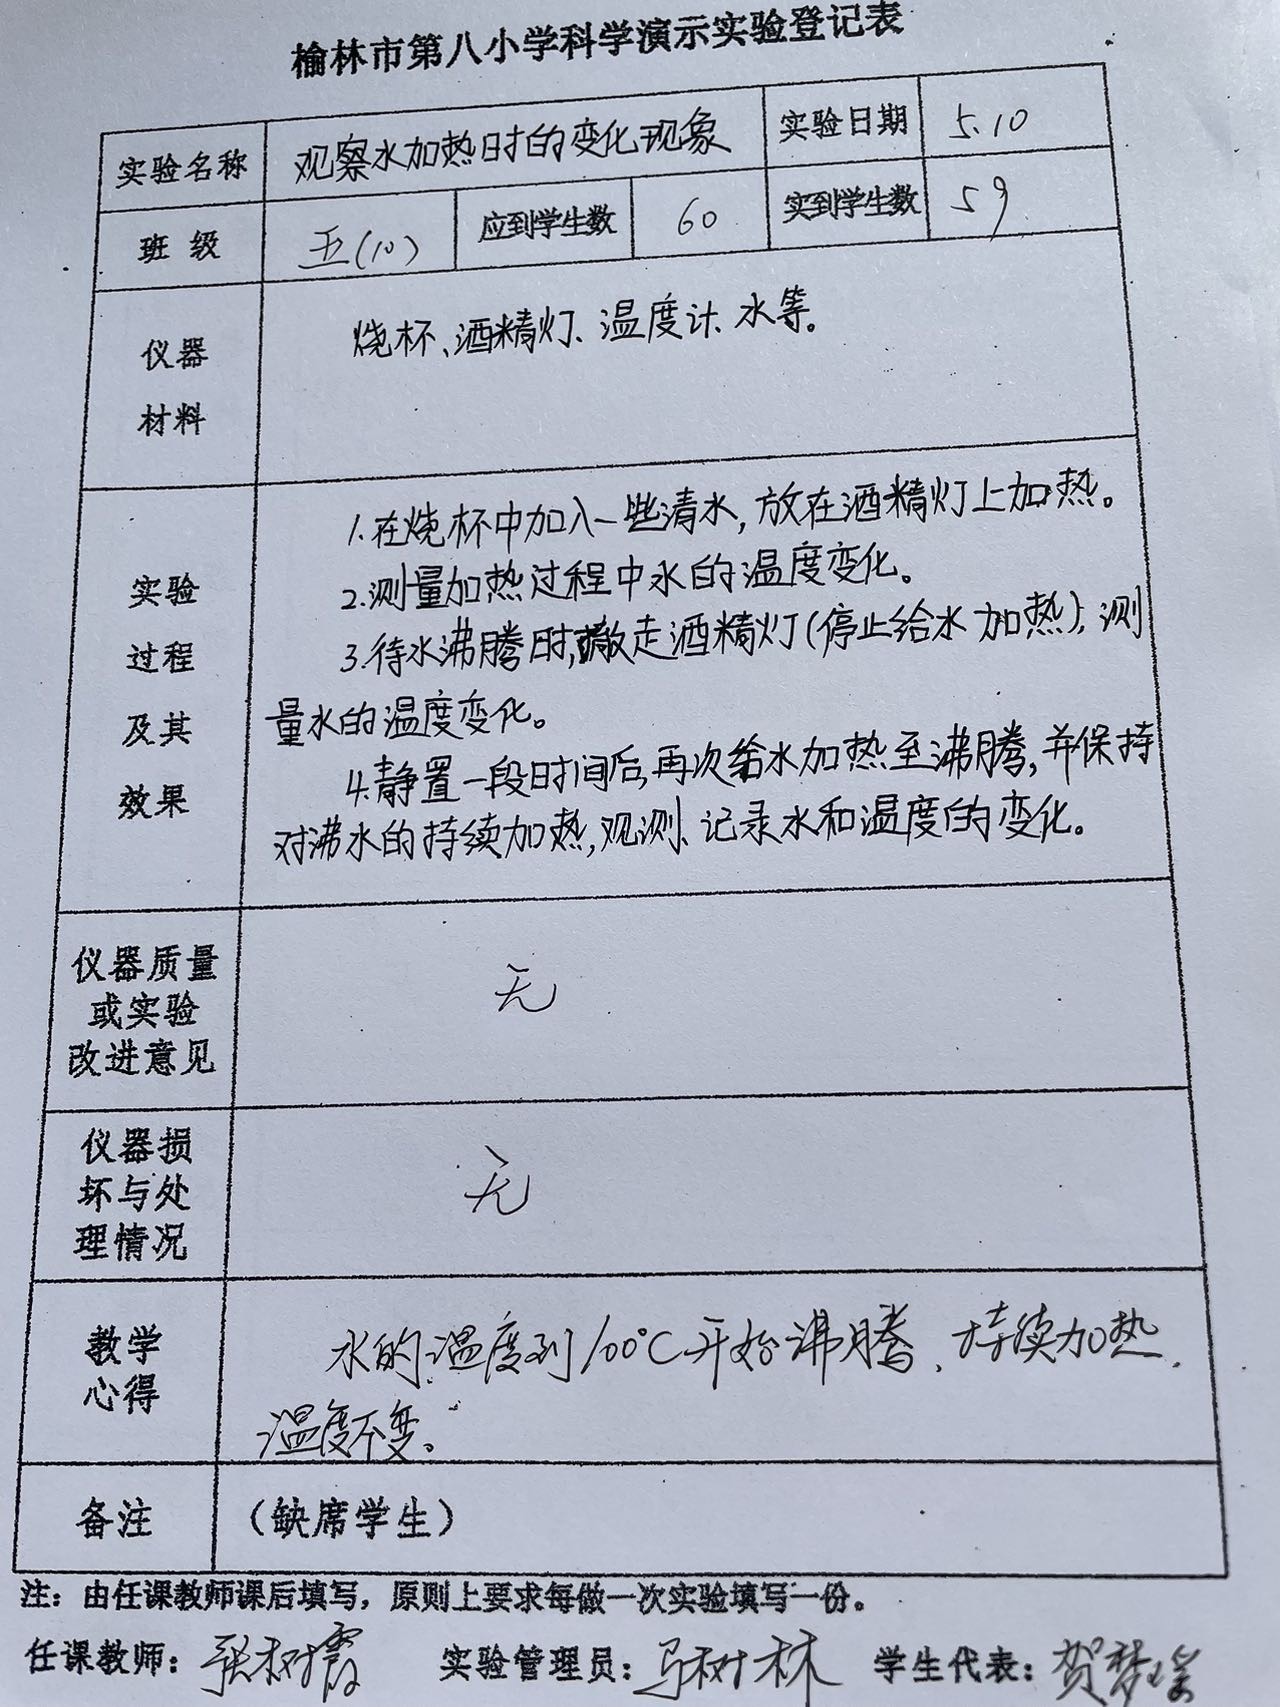 榆林市第八小学科学演示实验登记表
实验名称 观察水加热时的变化现象 实验日期 5.10
班 级 五(10) 应到学生数 60 实到学生数 59
仪器
材料
烧杯、酒精灯、温度计、水等。
实验
过程
及其
效果
1.在烧杯中加入一些清水,放在酒精灯上加热。
2.测量加热过程中水的温度变化。
3.待水沸腾时,撤走酒精灯(停止给水加热),测
量水的温度变化。
4.静置一段时间后,再次给水加热至沸腾,并保持
对沸水的持续加热,观测、记录水和温度的变化。
仪器质量
或实验
改进意见
无
仪器损
坏与处
理情况
无
教学
心得
水的温度到100℃开始沸腾、持续加热,
温度不变。
备注 (缺席学生)
注:由任课教师课后填写,原则上要求每做一次实验填写一份。
任课教师:张树霞 实验管理员:马树林 学生代表:贺梦瑶